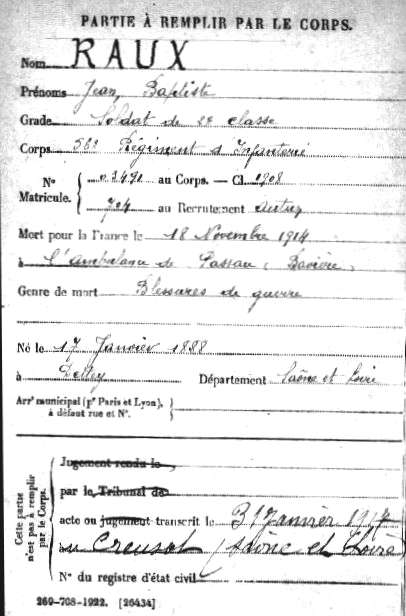 PARTIE À REMPLIR PAR LE CORPS.
Nom RAUX
Prénoms Jean Baptiste
Grade Soldat de 2e classe
Corps 56e Régiment d'Infanterie
N° 03490 au Corps. — Cl. 1908
Matricule. 704 au Recrutement Autun
Mort pour la France le 18 Novembre 1914
à l'ambulance de Passau (Bavière)
Genre de mort Blessures de guerre
Né le 17 Janvier 1888
à Département Saône et Loire
Arrt municipal (pr Paris et Lyon),
à défaut rue et N°.
Cette partie
n'est pas à remplir
par le Corps.
Jugement rendu le
par le Tribunal de
acte ou jugement transcrit le 31 Janvier 1917
au Creusot (Saône et Loire)
N° du registre d'état civil
269-708-1922. [26434]